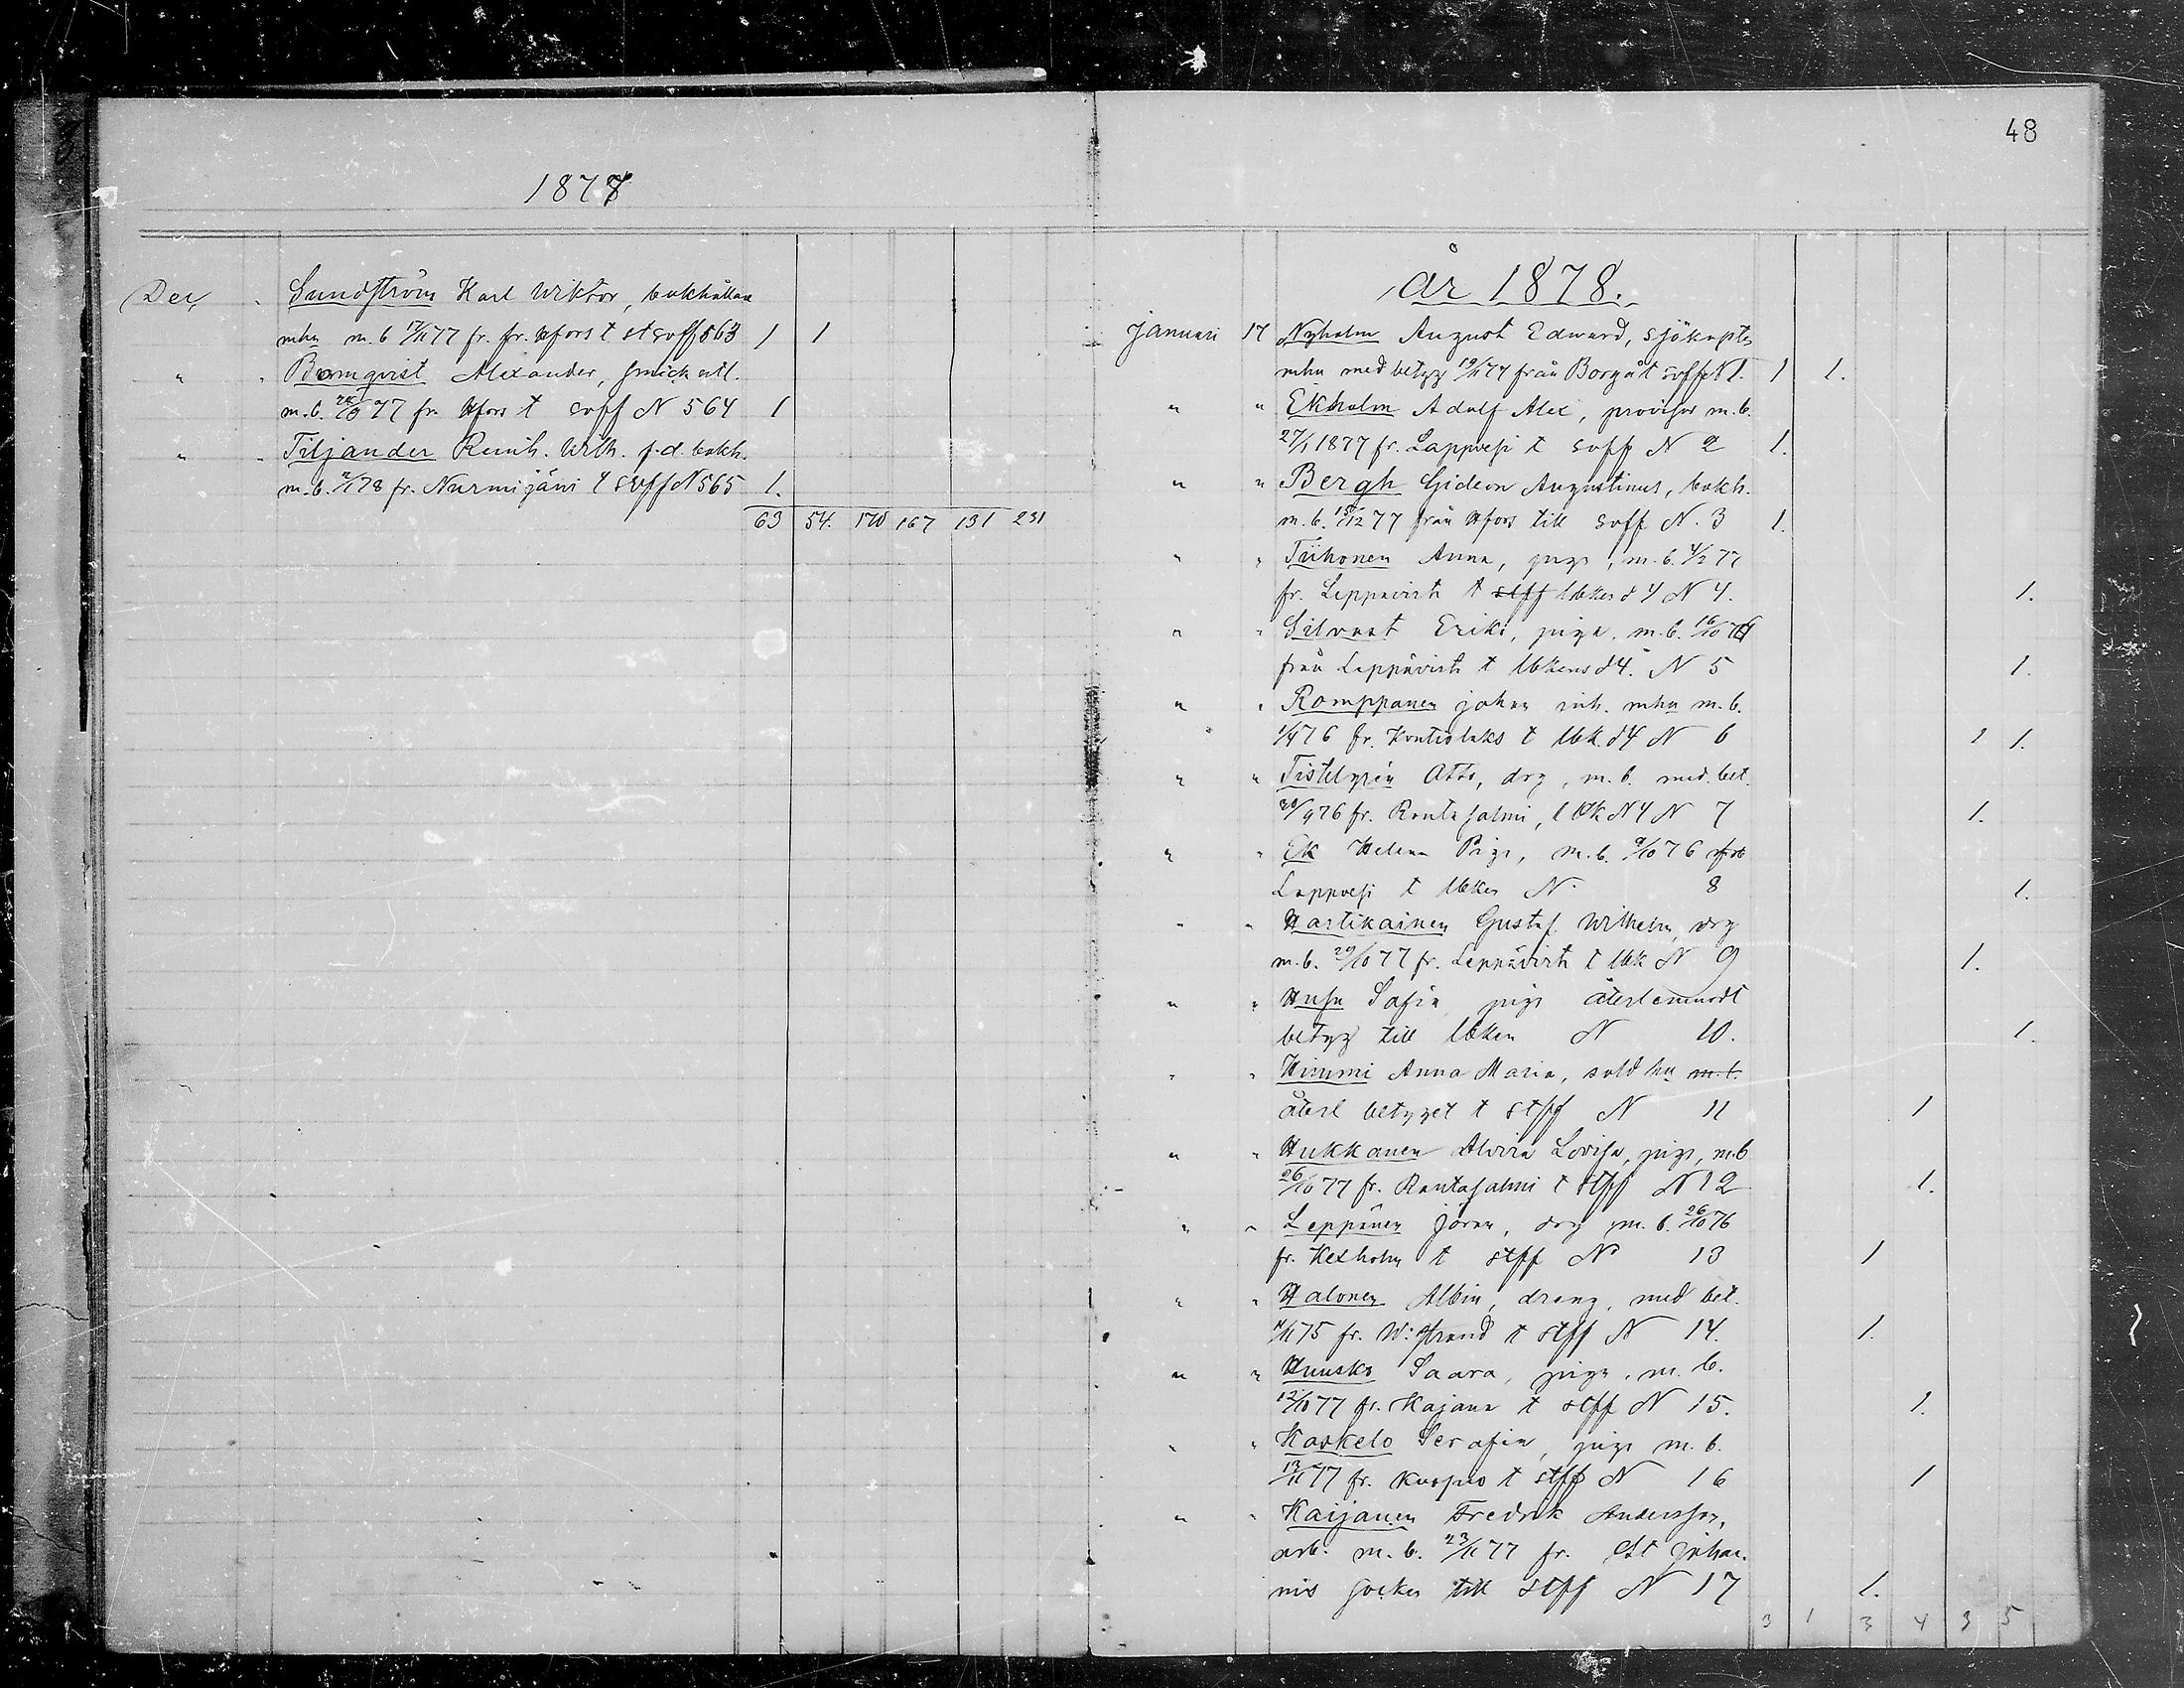 48
1877
Dec. " Sundström Karl Wiktor, bokhållare
mhu m.b 17/11 77 fr. fr. Hfors t st svff 563 1 1
" " Blomqvist Alexander, snick utl.
m.b. 25/10 77 fr Hfors t svff N 564 1
" " Tiljander Reinh. Wilh. f.d. bokh.
m.b. 2/1 78 fr. Nurmijärvi t svff N 565 1.
63 54. 170 167 131 231
år 1878.
Januari 17 Nyholm August Edward, sjökapten
mhu med betyg 19/11 77 från Borgå t svff N 1. 1 1.
" " Ekholm Adolf Alex, provisor m.b.
27/1 1877 fr. Lappvesi t svff N 2 1.
" " Bergh Gideon Augustinus, bokh.
m.b. 15/12 77 från Hfors till svff N. 3 1.
" " Tiihonen Anna, piga, m.b. 4/2 77
fr. Leppävirta t stff lbken d 4 N 4. 1.
" " Silvast Erika, piga. m.b. 16/10 76
från Leppävirta t lbkens d 4. N 5 1.
" " Romppanen Johan inh. mhu m.b.
1/4 76 fr. Kontiolaks t lbk. d 4 N 6 1 1.
" " Otto, drg, m.b. med. bet.
20/4 76 fr. Rantasalmi, t lbk N 4 N 7 1.
" " Ek Helena Piga, m.b. 9/10 76 fr
Lappvesi t lbken N. 8 1.
" " Hartikainen Gustaf Wilhelm, drg
m.b. 29/10 77 fr. Leppävirta t lbk N 9 1.
" " Husu Sofia, piga återlemnadt
betyg till lbken N 10. 1.
" " Himmi Anna Maria, sold hu m.b.
återl betyget t stff N 11 1
" " Hukkanen Alvira Lovisa, piga, m.b
26/10 77 fr. Rantasalmi t stff N 12 1.
" " Leppänen Jöran, drg m.b. 26/10 76
fr. Kexholm t stff N 13 1
" " Halonen Albin, dreng, med bet.
4/11 75 fr. W: strand t stff N 14. 1.
" " Huusko Saara, piga, m.b.
12/10 77 fr. Kajana t stff N 15. 1.
" " Kaskelo Serafia, piga m.b.
13/11 77 fr. Kuopio t stff N 16 1
" " Kaijanen Fredrik Andersson,
arb. m.b. 23/11 77 fr. St Johan-
nis socken till stff N 17 1.
3 1 3 4 3 5